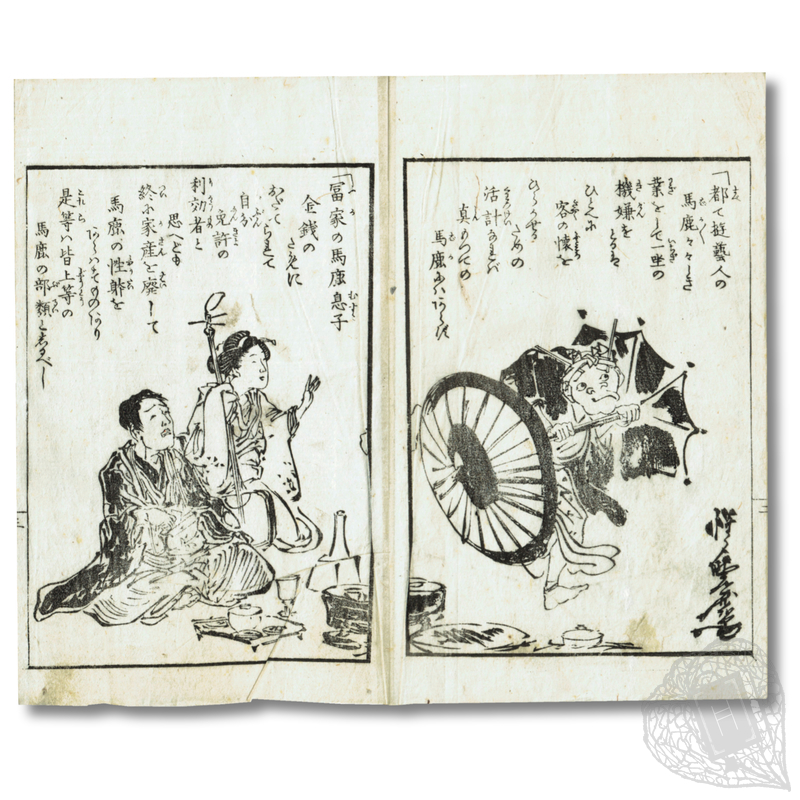 「都て遊藝人の
馬鹿々々しき
業をして一坐の
機嫌を
とるは
ひとへに
客の懐を
ための
活計なれば
馬鹿にハあらず
「冨家の馬鹿息子
金銭の
ために
おだてられて
自分
免許の
利効者と
思へども
終に家産を廃して
馬鹿の性躰を
あらハすものあり
是等ハ皆上等の
馬鹿の部類と志るべし